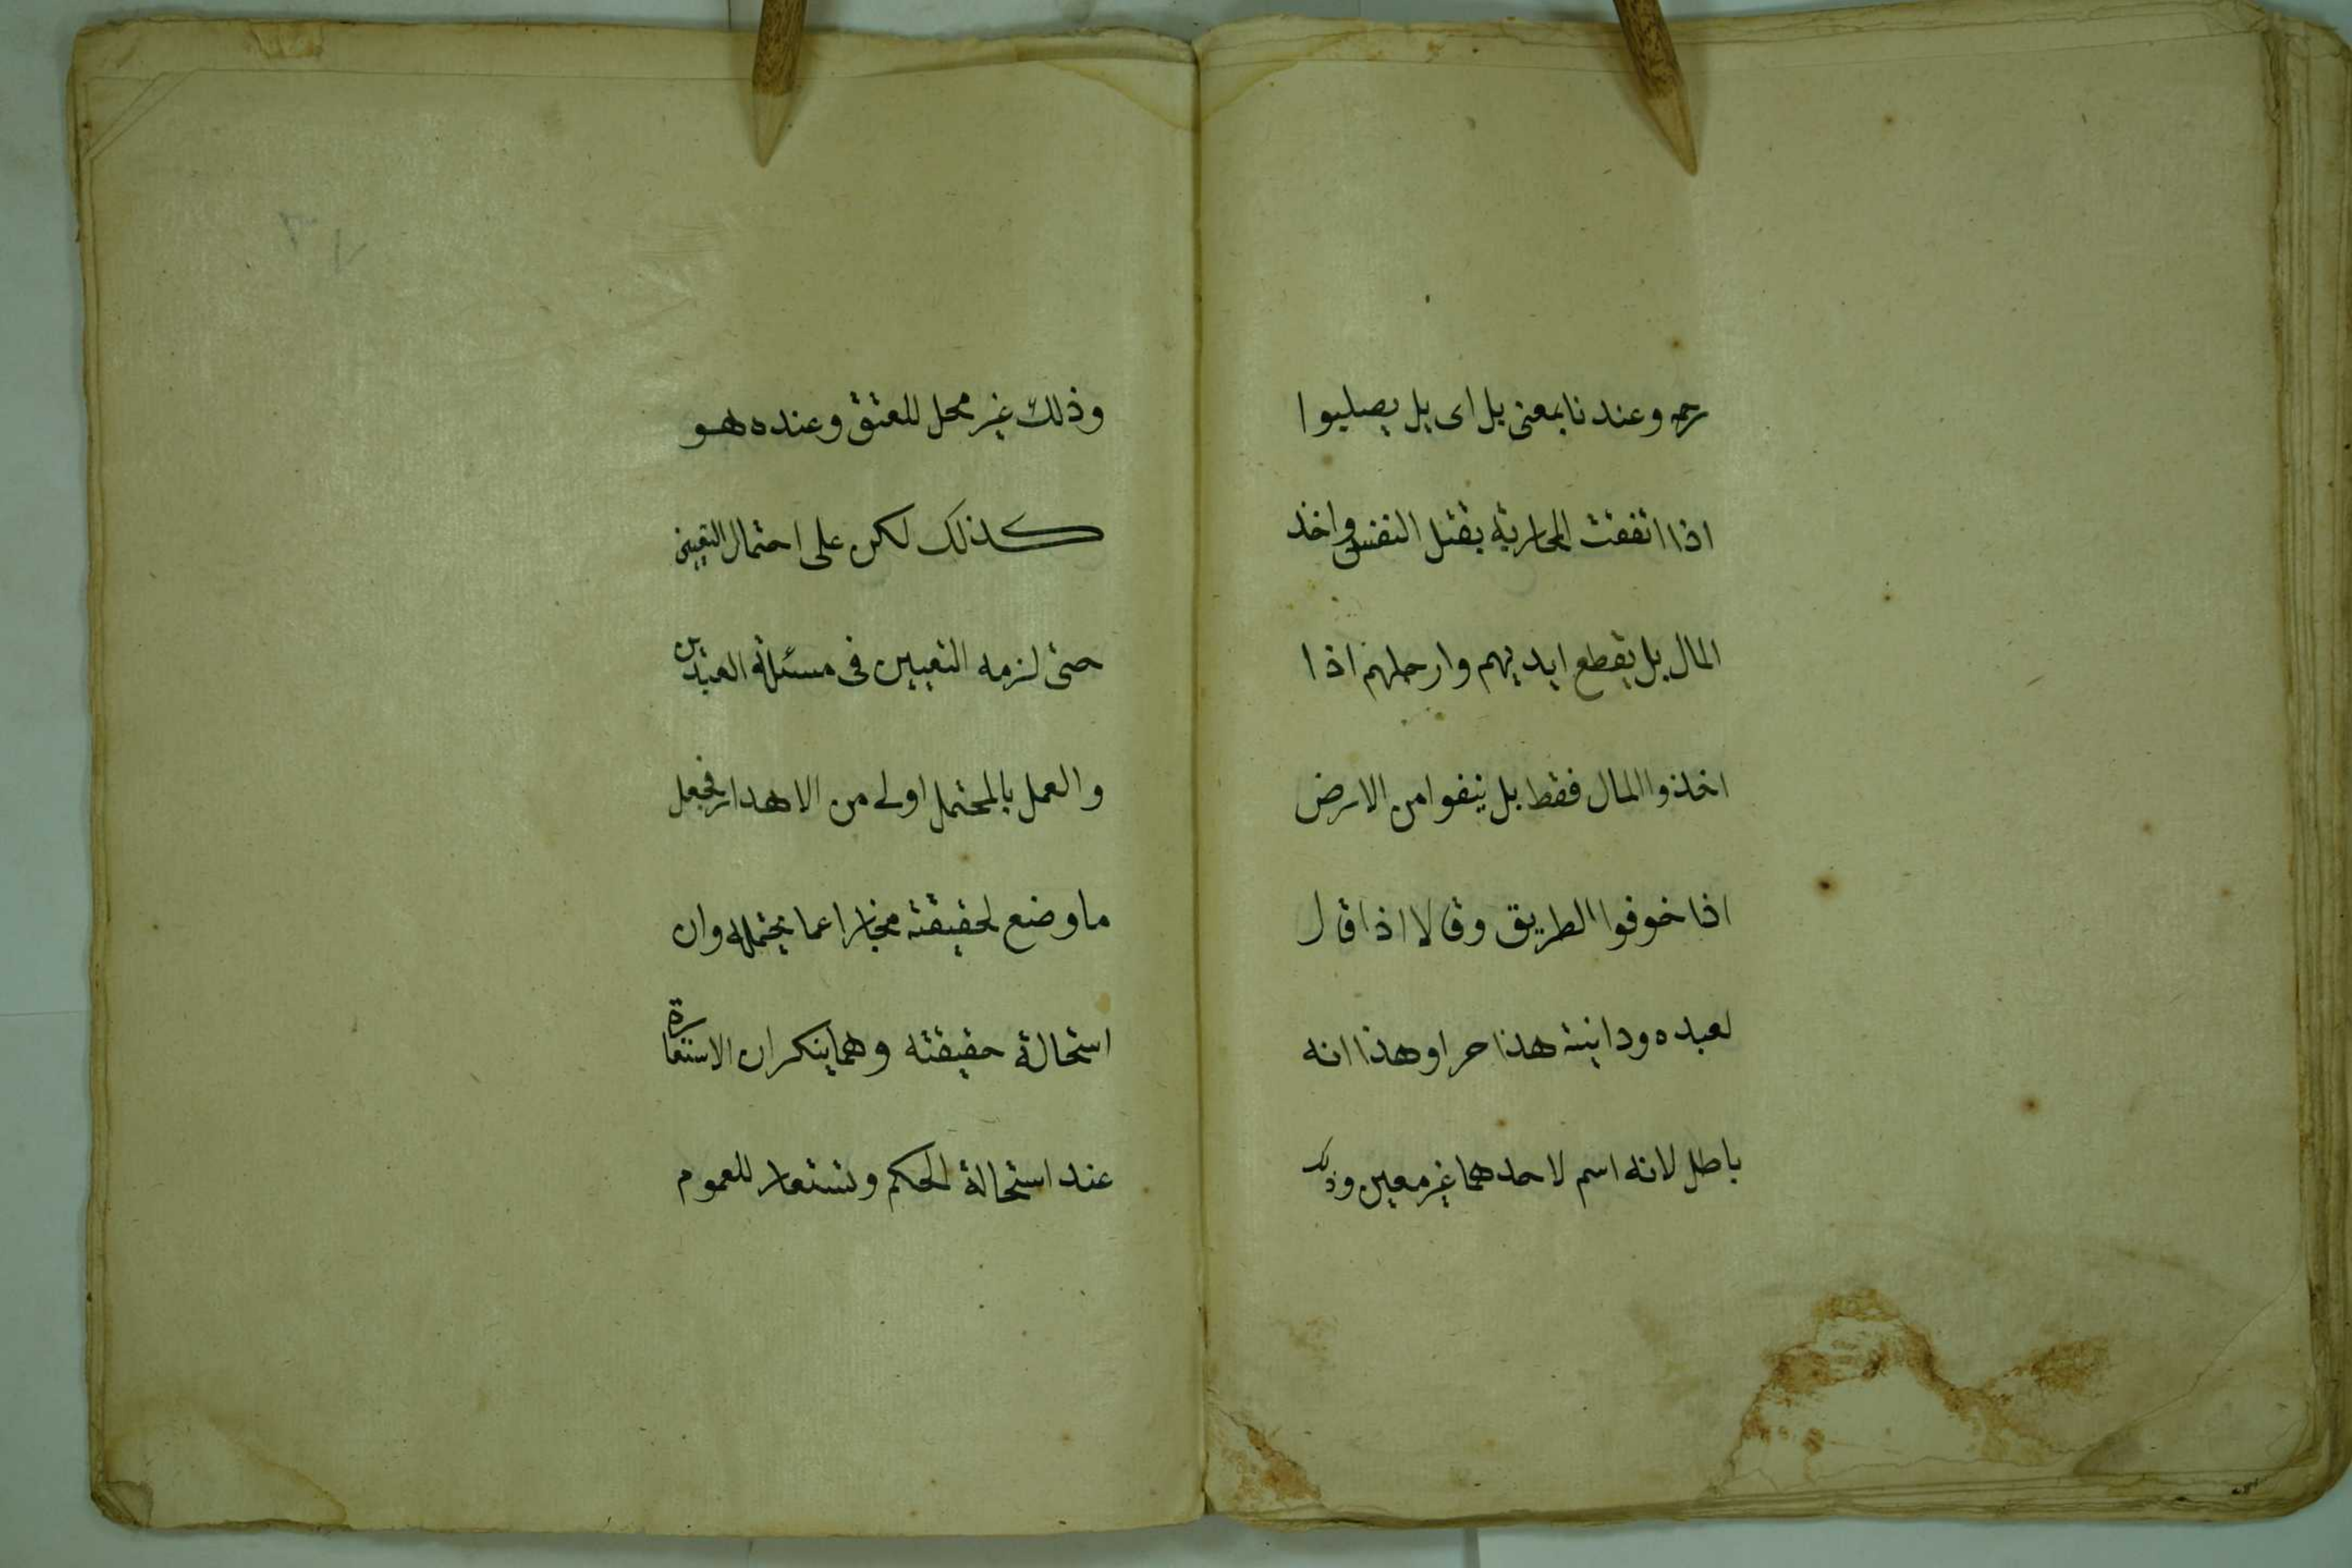 رحمه وعندنا بمعنى بل اى بل يصلبوا
اذا اتفقت المحاربة بقتل النفس واخذ
المال بل يقطع ايديهم وارجلهم اذا
اخذوا المال فقط بل ينفوا من الارض
اذا خوفوا الطريق وقالا اذا قال
لعبده ودابته هذا حر او هذا انه
باطل لانه اسم لاحدهما غير معين وذلك
وذلك غير محل للعتق وعنده هو
كذلك لكن على احتمال التعيين
حتى لزمه التعيين فى مسئلة العبدين
والعمل بالمحتمل اولى من الاهدار فجعل
ما وضع لحقيقته مجازا عما يحتمله وان
استحالة حقيقته وهما ينكران الاستعارة
عند استحالة الحكم وتستعار للعموم